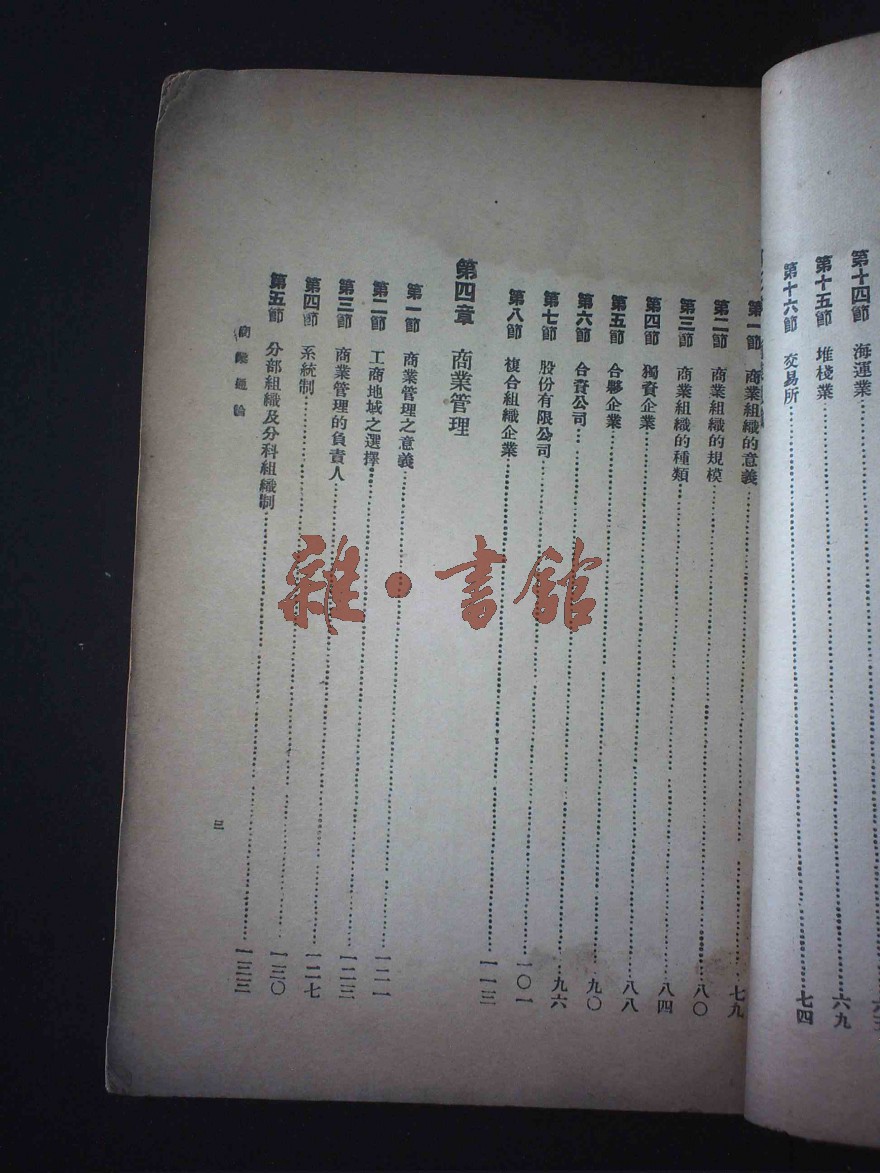 第十四節 海運業
第十五節 堆棧業……六九
第十六節 交易所……七四
第一節 商業組織的意義……七九
第二節 商業組織的規模……八〇
第三節 商業組織的種類……八四
第四節 獨資企業……八八
第五節 合夥企業……九〇
第六節 合資公司……九六
第七節 股份有限公司……一〇一
第八節 複合組織企業……一一三
第四章 商業管理
第一節 商業管理之意義……一二一
第二節 工商地域之選擇……一二三
第三節 商業管理的負責人……一二七
第四節 系統制……一三〇
第五節 分部組織及分科組織制……一三三
商業通論
二
雜·書館